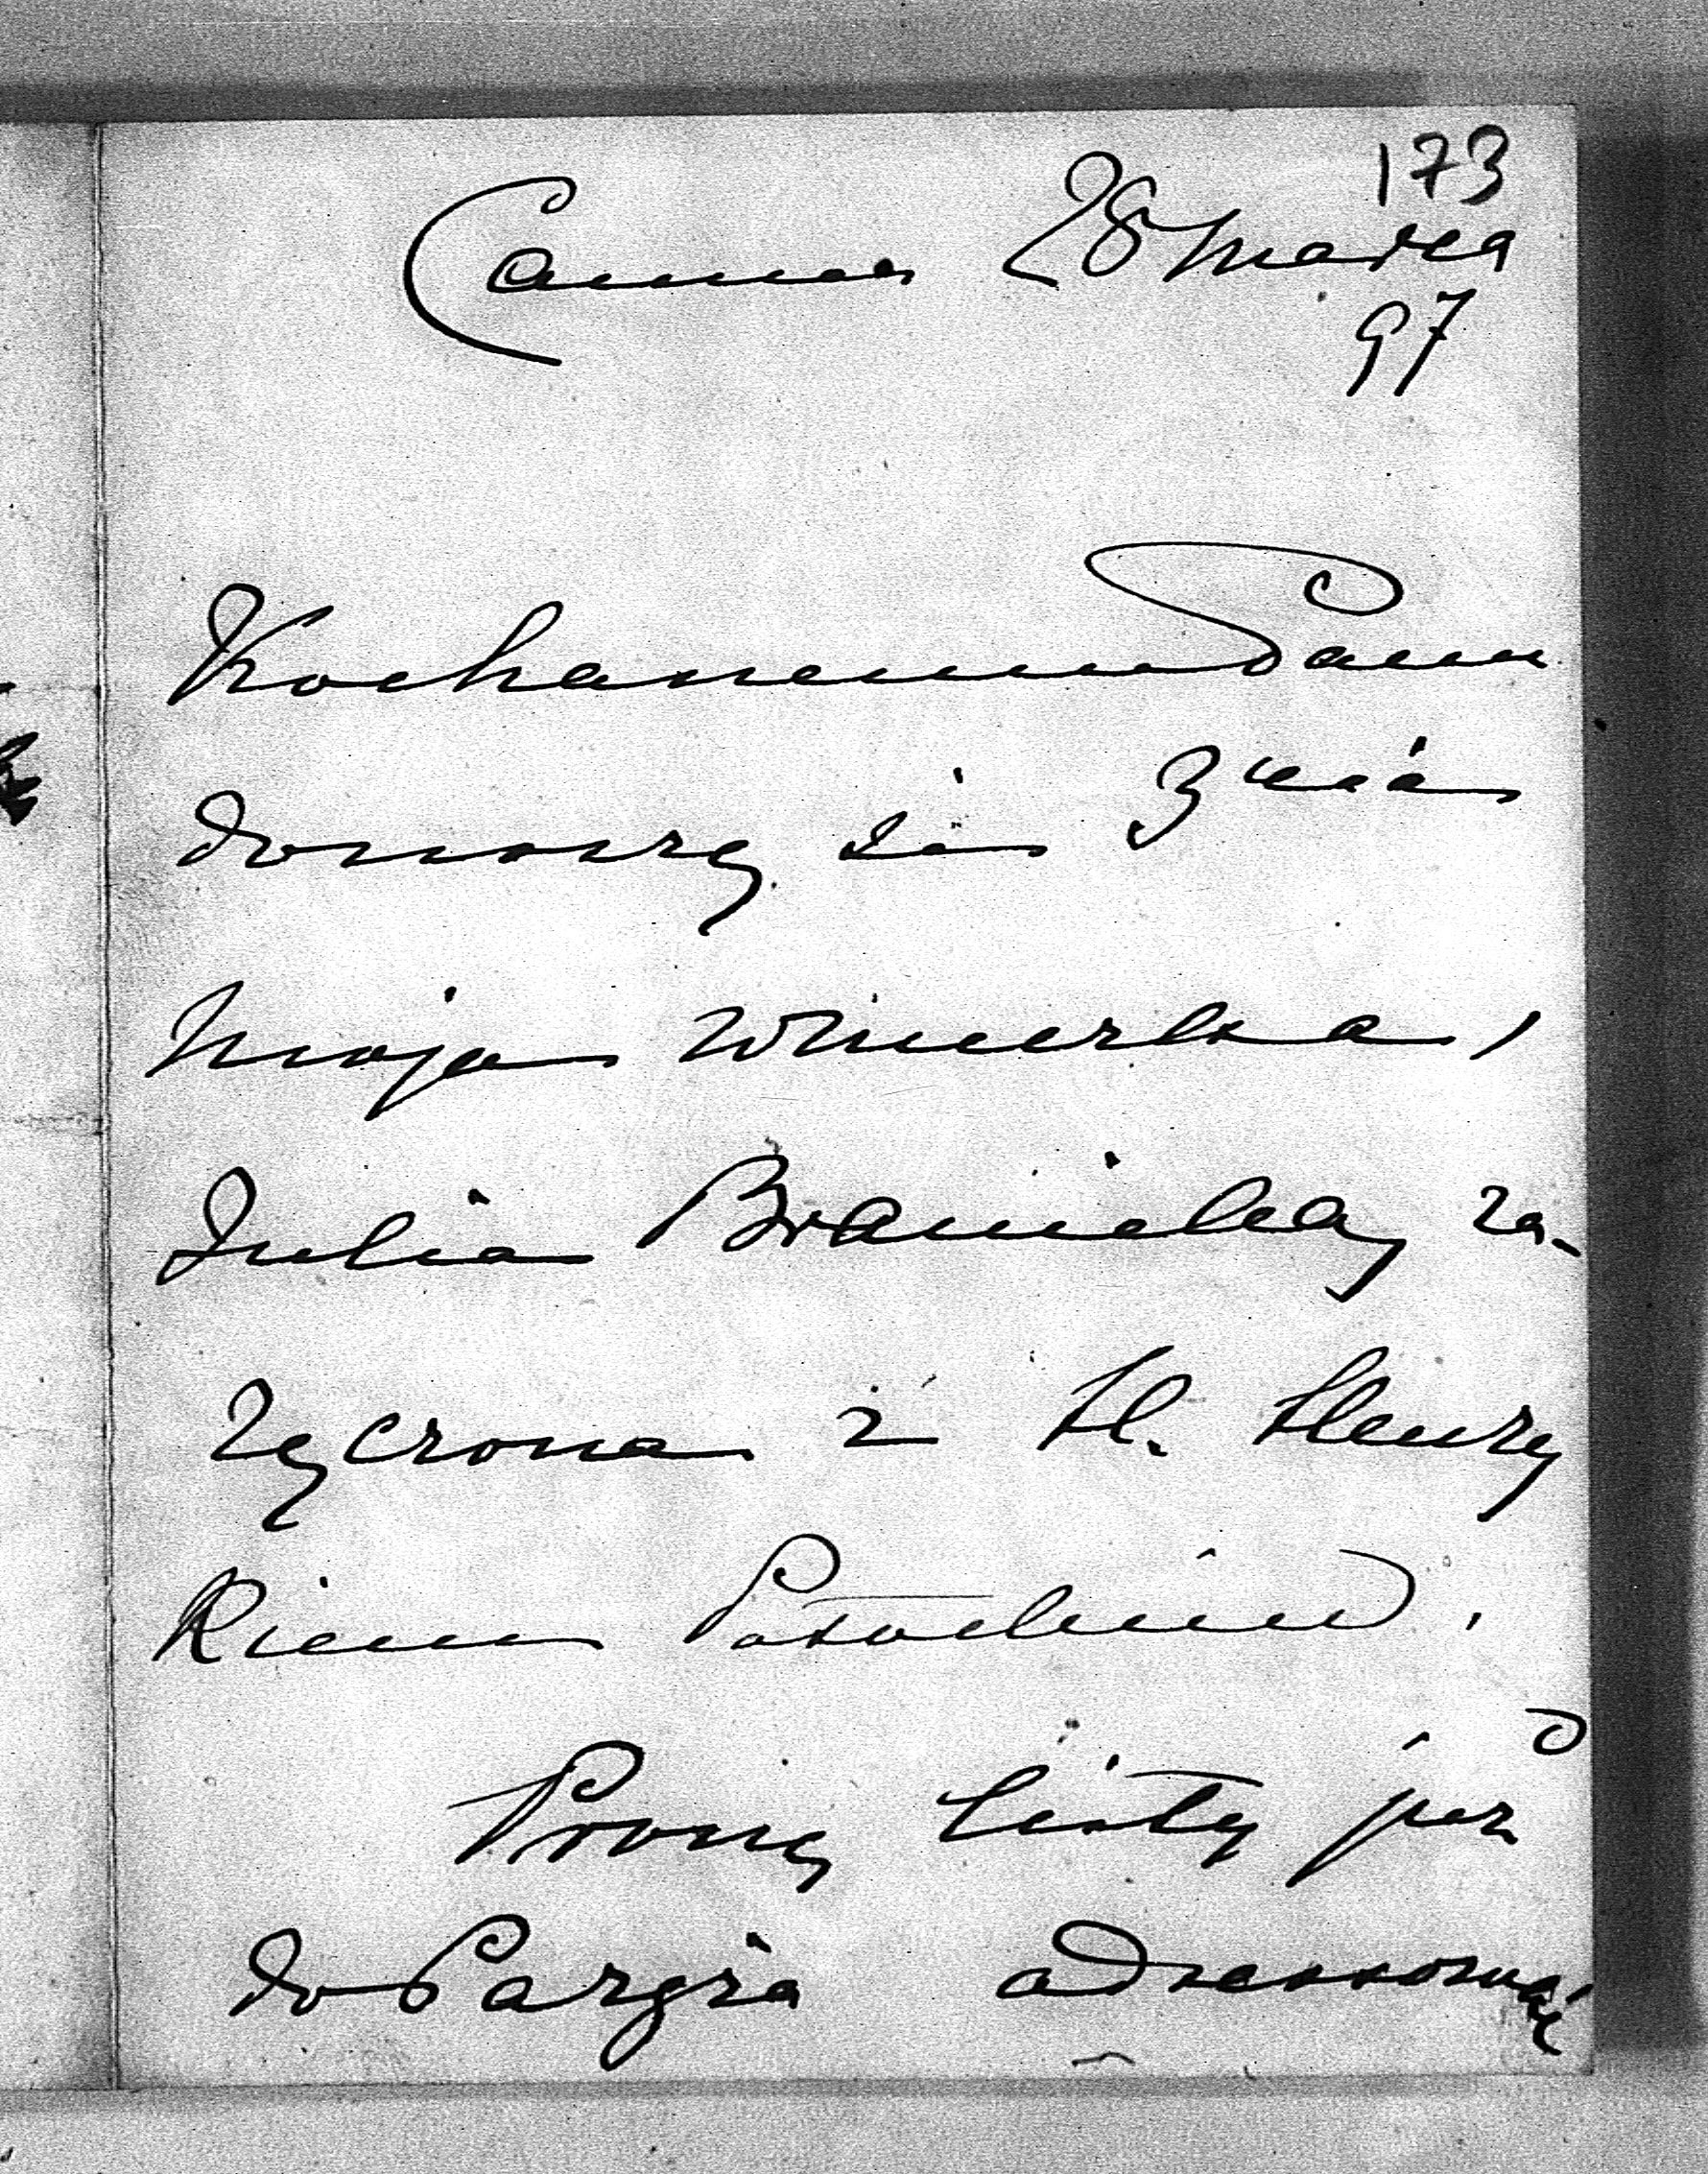 173
Cannes 28 Marca
97
Kochanemu Panu
donoszę że 3cia
moja wnuczka,
Julia Branicka za-
ręczona z H. Henry
kiem Potockim.
Proszę listy już
do Paryża adressować